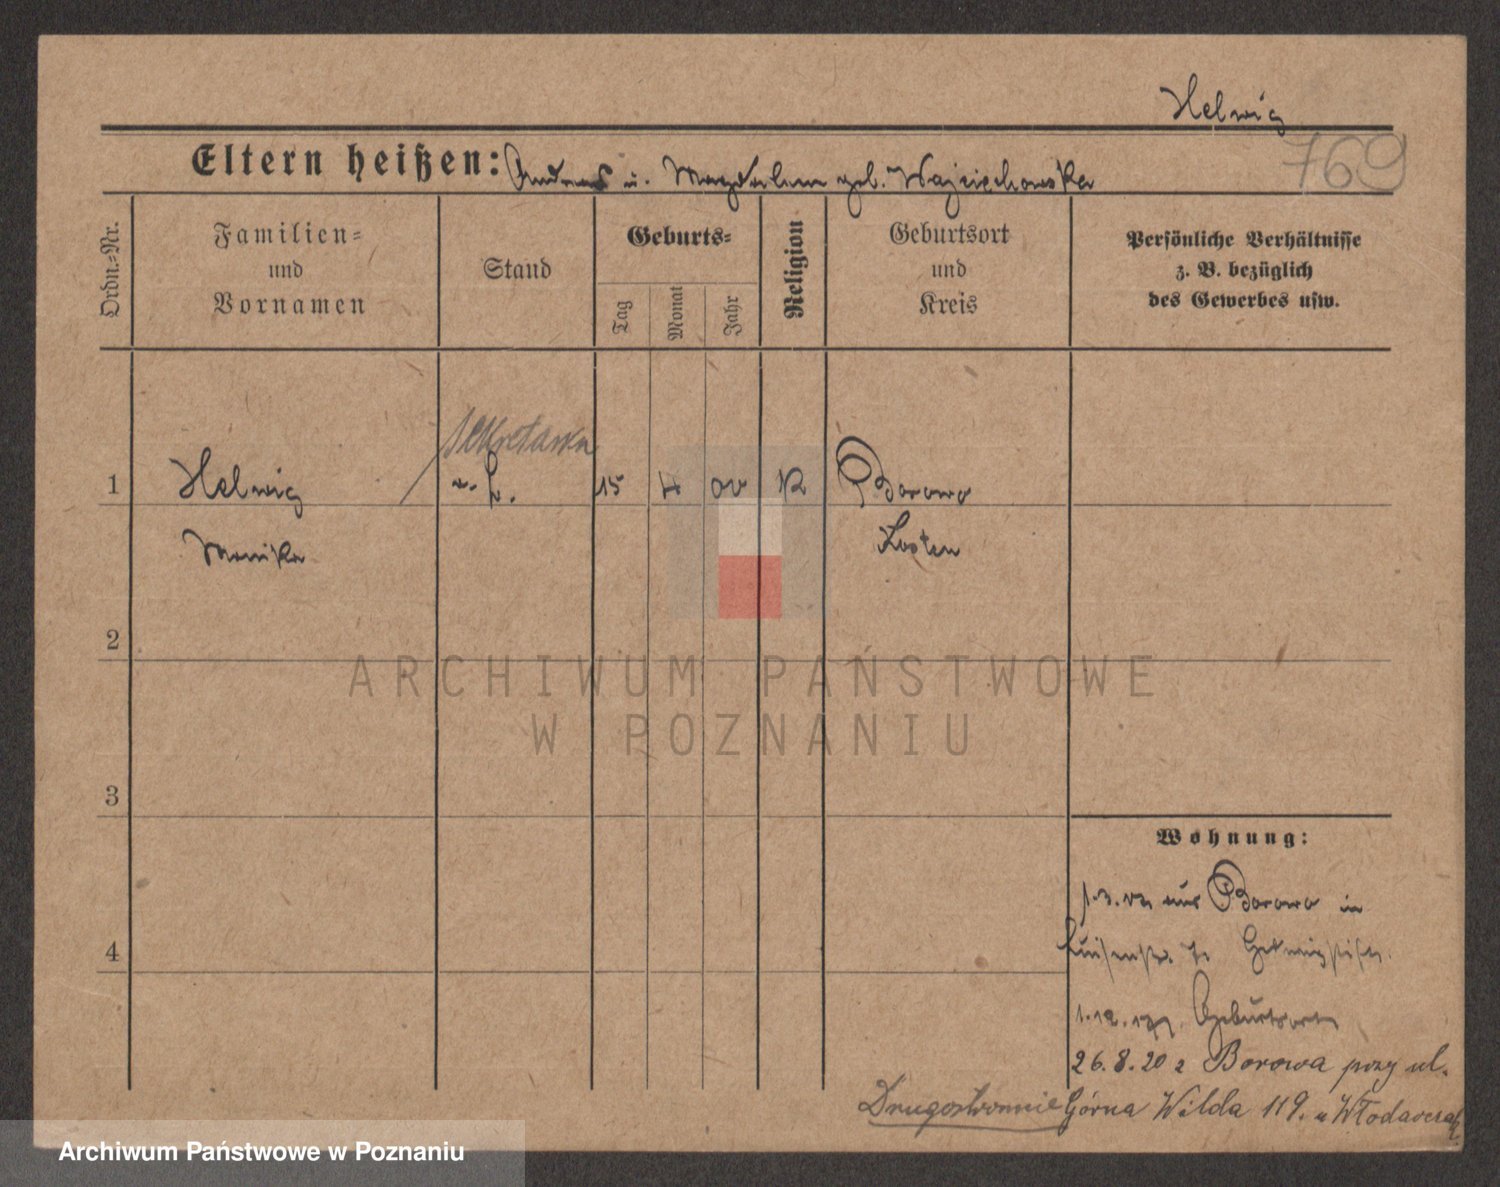 Helwig
769
Eltern heißen: Andreas u. Magdalena geb. Wojciechowska
Ordn.-Nr.
Familien-
und
Vornamen
Stand
Geburts-
Tag
Monat
Jahr
Religion
Geburtsort
und
Kreis
Persönliche Verhältnisse
z. B. bezüglich
des Gewerbes usw.
Sekretarka
1
Helwig
15
K
Borowo
Monika
Kosten
2
ARCHIWUM PAŃSTWOWE
W POZNANIU
3
Wohnung:
aus Borowo in
4
Luisenstr.
Geburtsort
26.8.20 z Borowa przy ul.
Drugostronnie Górna Wilda 119. u Włodarczak
Archiwum Państwowe w Poznaniu